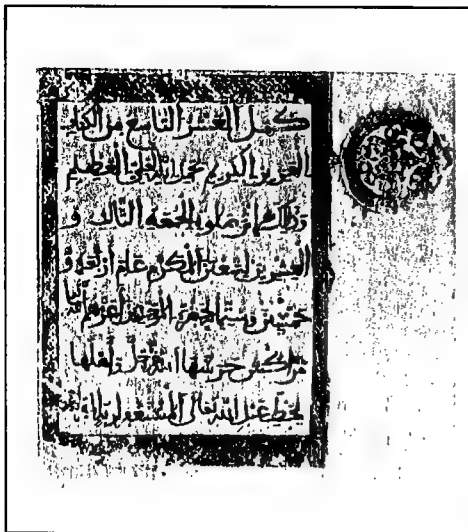 كمل العشر التاسع من الكتاب
العزيز الكريم بحمد الله العلي العظيم
وذلك إثر صلوة الجمعة الثالث و
العشرين لشعبان المكرم عام أربعة و
خمسين وستمائة بحضرة الموحدين أعزهم الله
مراكش حرسها الله
بخط عبد الله تعالى المستغفر لربه